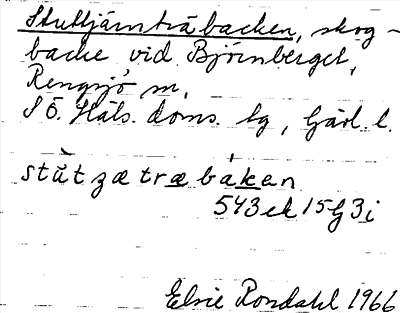 Stuttjärnträbacken, skog-
backe vid Björnberget,
Rengsjö m,
S Ö. Häls. doms. bg, Gävl. l.
stùt zæ træ báken
543 ek 15 G 3 i
Elsie Rondahl 1966